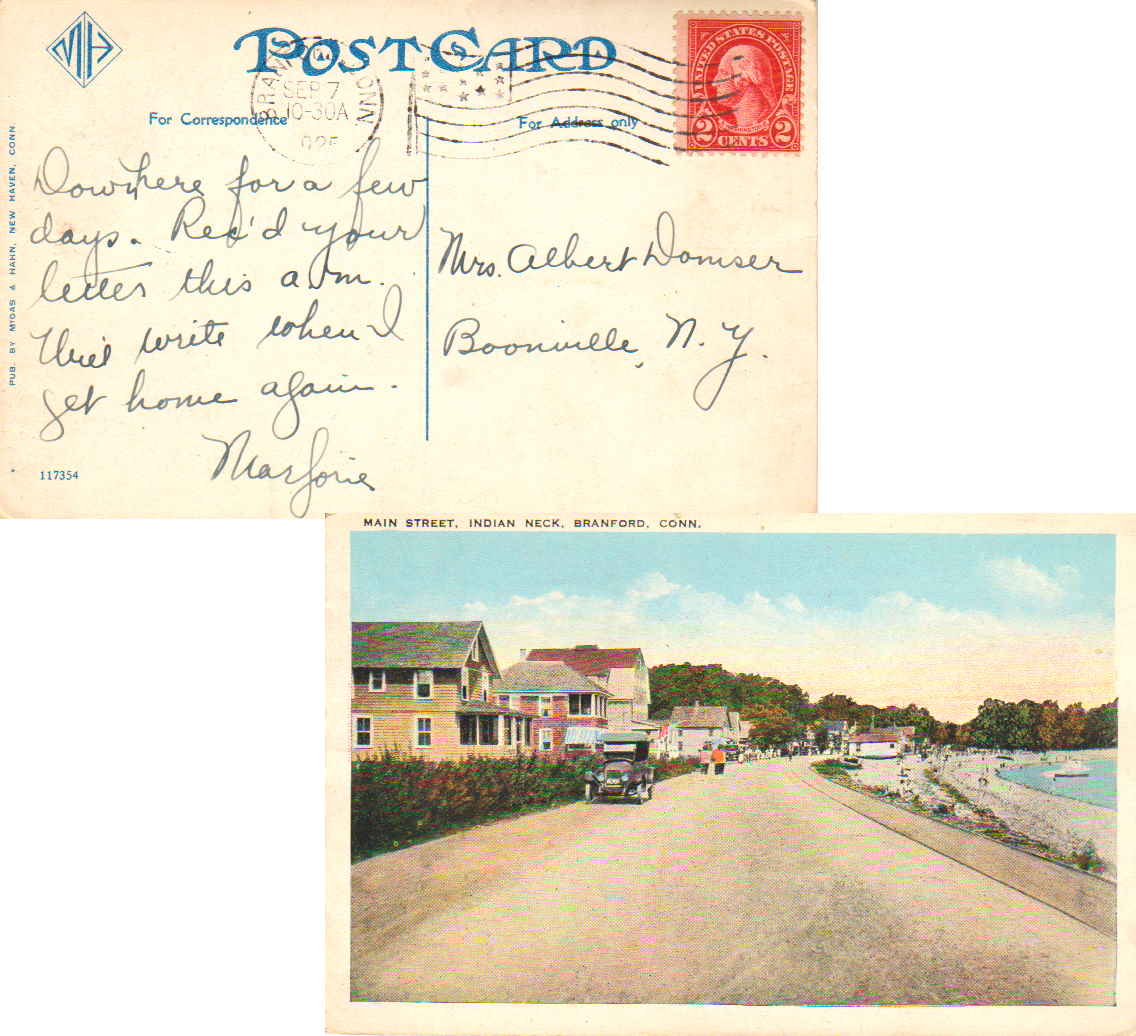 MH
POST CARD
BRANFORD
CONN
SEP 7
10-30A
1925
UNITED STATES POSTAGE
WASHINGTON
2 CENTS 2
For Correspondence
For Address only
PUB. BY MOAS & HAHN, NEW HAVEN, CONN.
Down here for a few
days. Rec'd your
letter this a.m.
write when I
get home again.
Marjorie
Mrs. Albert Domser
Boonville, N.Y.
117354
MAIN STREET, INDIAN NECK, BRANFORD, CONN.